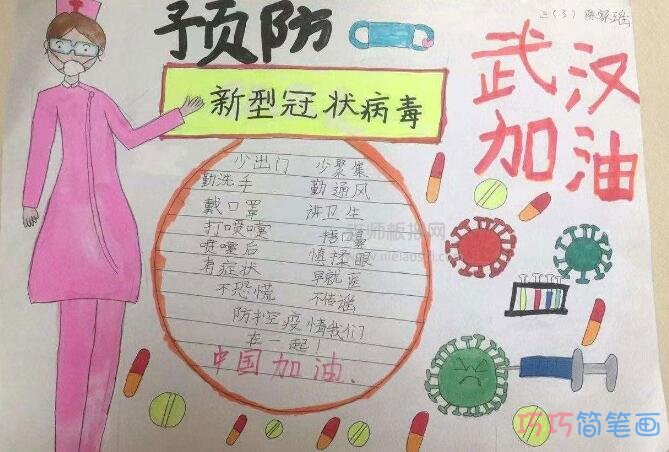 三(3)
预防
新型冠状病毒
武汉
加油
少出门 少聚集
勤洗手 勤通风
戴口罩 讲卫生
打喷嚏 捂鼻
喷嚏后 慎揉眼
有症状 早就医
不恐慌 不传谣
防控疫情我们
在一起!
中国加油.
老师板报网
巧巧简笔画